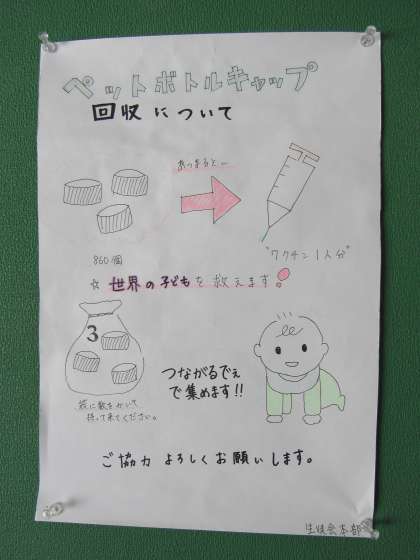 ペットボトルキャップ
回収について
あつまると…
860個
"ワクチン1人分"
☆世界の子どもを救えます!
3
つながるでぇ
で集めます!!
袋に数をかいて
持って来てください。
ご協力 よろしくお願いします。
生徒会本部